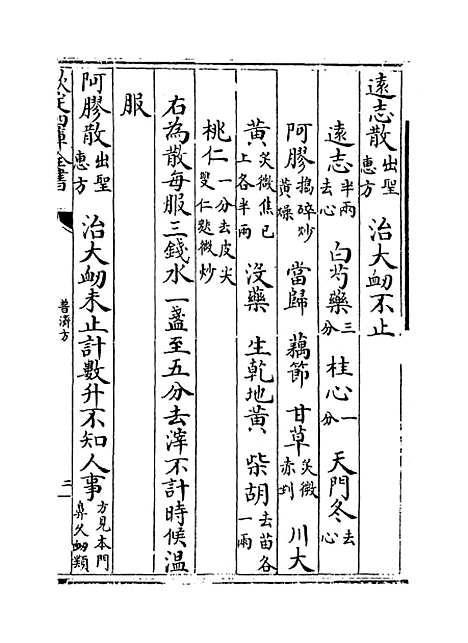 遠志散出聖惠方　治大衄不止
遠志半兩去心　白芍藥三分　桂心一分　天門冬去心
阿膠搗碎炒黃燥　當歸　藕節　甘草炙微赤剉　川大
黃炙微焦已上各半兩　沒藥　生乾地黃　柴胡去苗各一兩
桃仁一分去皮尖雙仁麩微炒
右為散每服三錢水一盞至五分去滓不計時候溫
服
阿膠散出聖惠方　治大衄未止計數升不知人事方見本門鼻久衄類
欽定四庫全書
普濟方
二